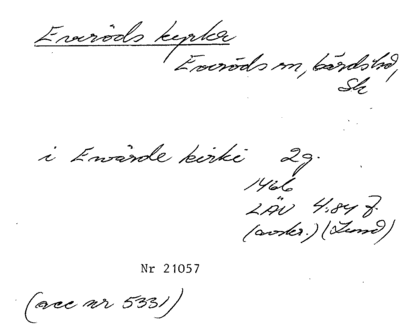 Everöds kyrka
Everöds sn, Gärds hd,
Sk
i Ewärde kirki 2 g.
1466
LÄU 4:84 f.
(avskr.) (Lund)
Nr 21057
(acc nr 5331)